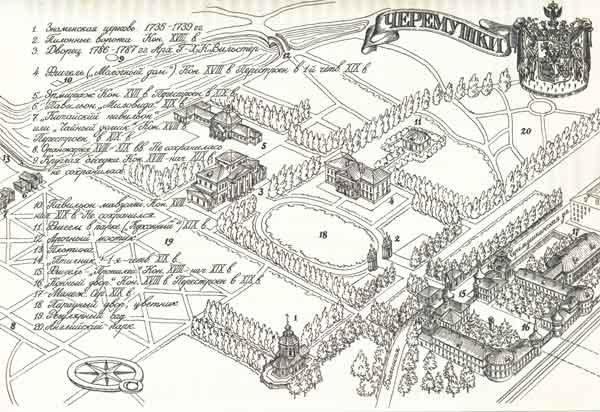 ЧЕРЕМУШКИ
1. Знаменская церковь 1735-1739 гг.
2. Пилонные ворота. Кон. XVIII в.
3. Дворец 1786-1787 гг. Арх. Ф-Х.К. Вильстер
4. Флигель („Малосный дом") Кон XVIII в Перестроен в 1й четв XIX в
5. Эрмитаж Кон. XVIII в Перестроен в XIX в
6. Павильон „Миловида" XIX в
7. Китайский павильон
или „Чайный домик" Кон XVIII в
Перестроен в XIX в
8. Оранжерея XVIII - XIX вв Не сохранилась
9. Круглая беседка. Кон. XVIII-нач XIX в
не сохранилась
10. Павильон мавзолей Кон XVIII
нач XIX в Не сохранился
11. Висем в парке XIX в
12. Арочный мостик
13. Плотина
14. Птичник 1-я четв XIX в
15. Флигель „Кон. XVIII-нач XIX в
16. Конный двор" Кон. XVIII в Перестроен в XIX в
17. Манеж Ср. XIX в
18. Парадный двор, цветник
19. Регулярный сад
20. Английский парк
1
2
3
4
5
8
9
10
11
12
13
15
16
17
18
19
20